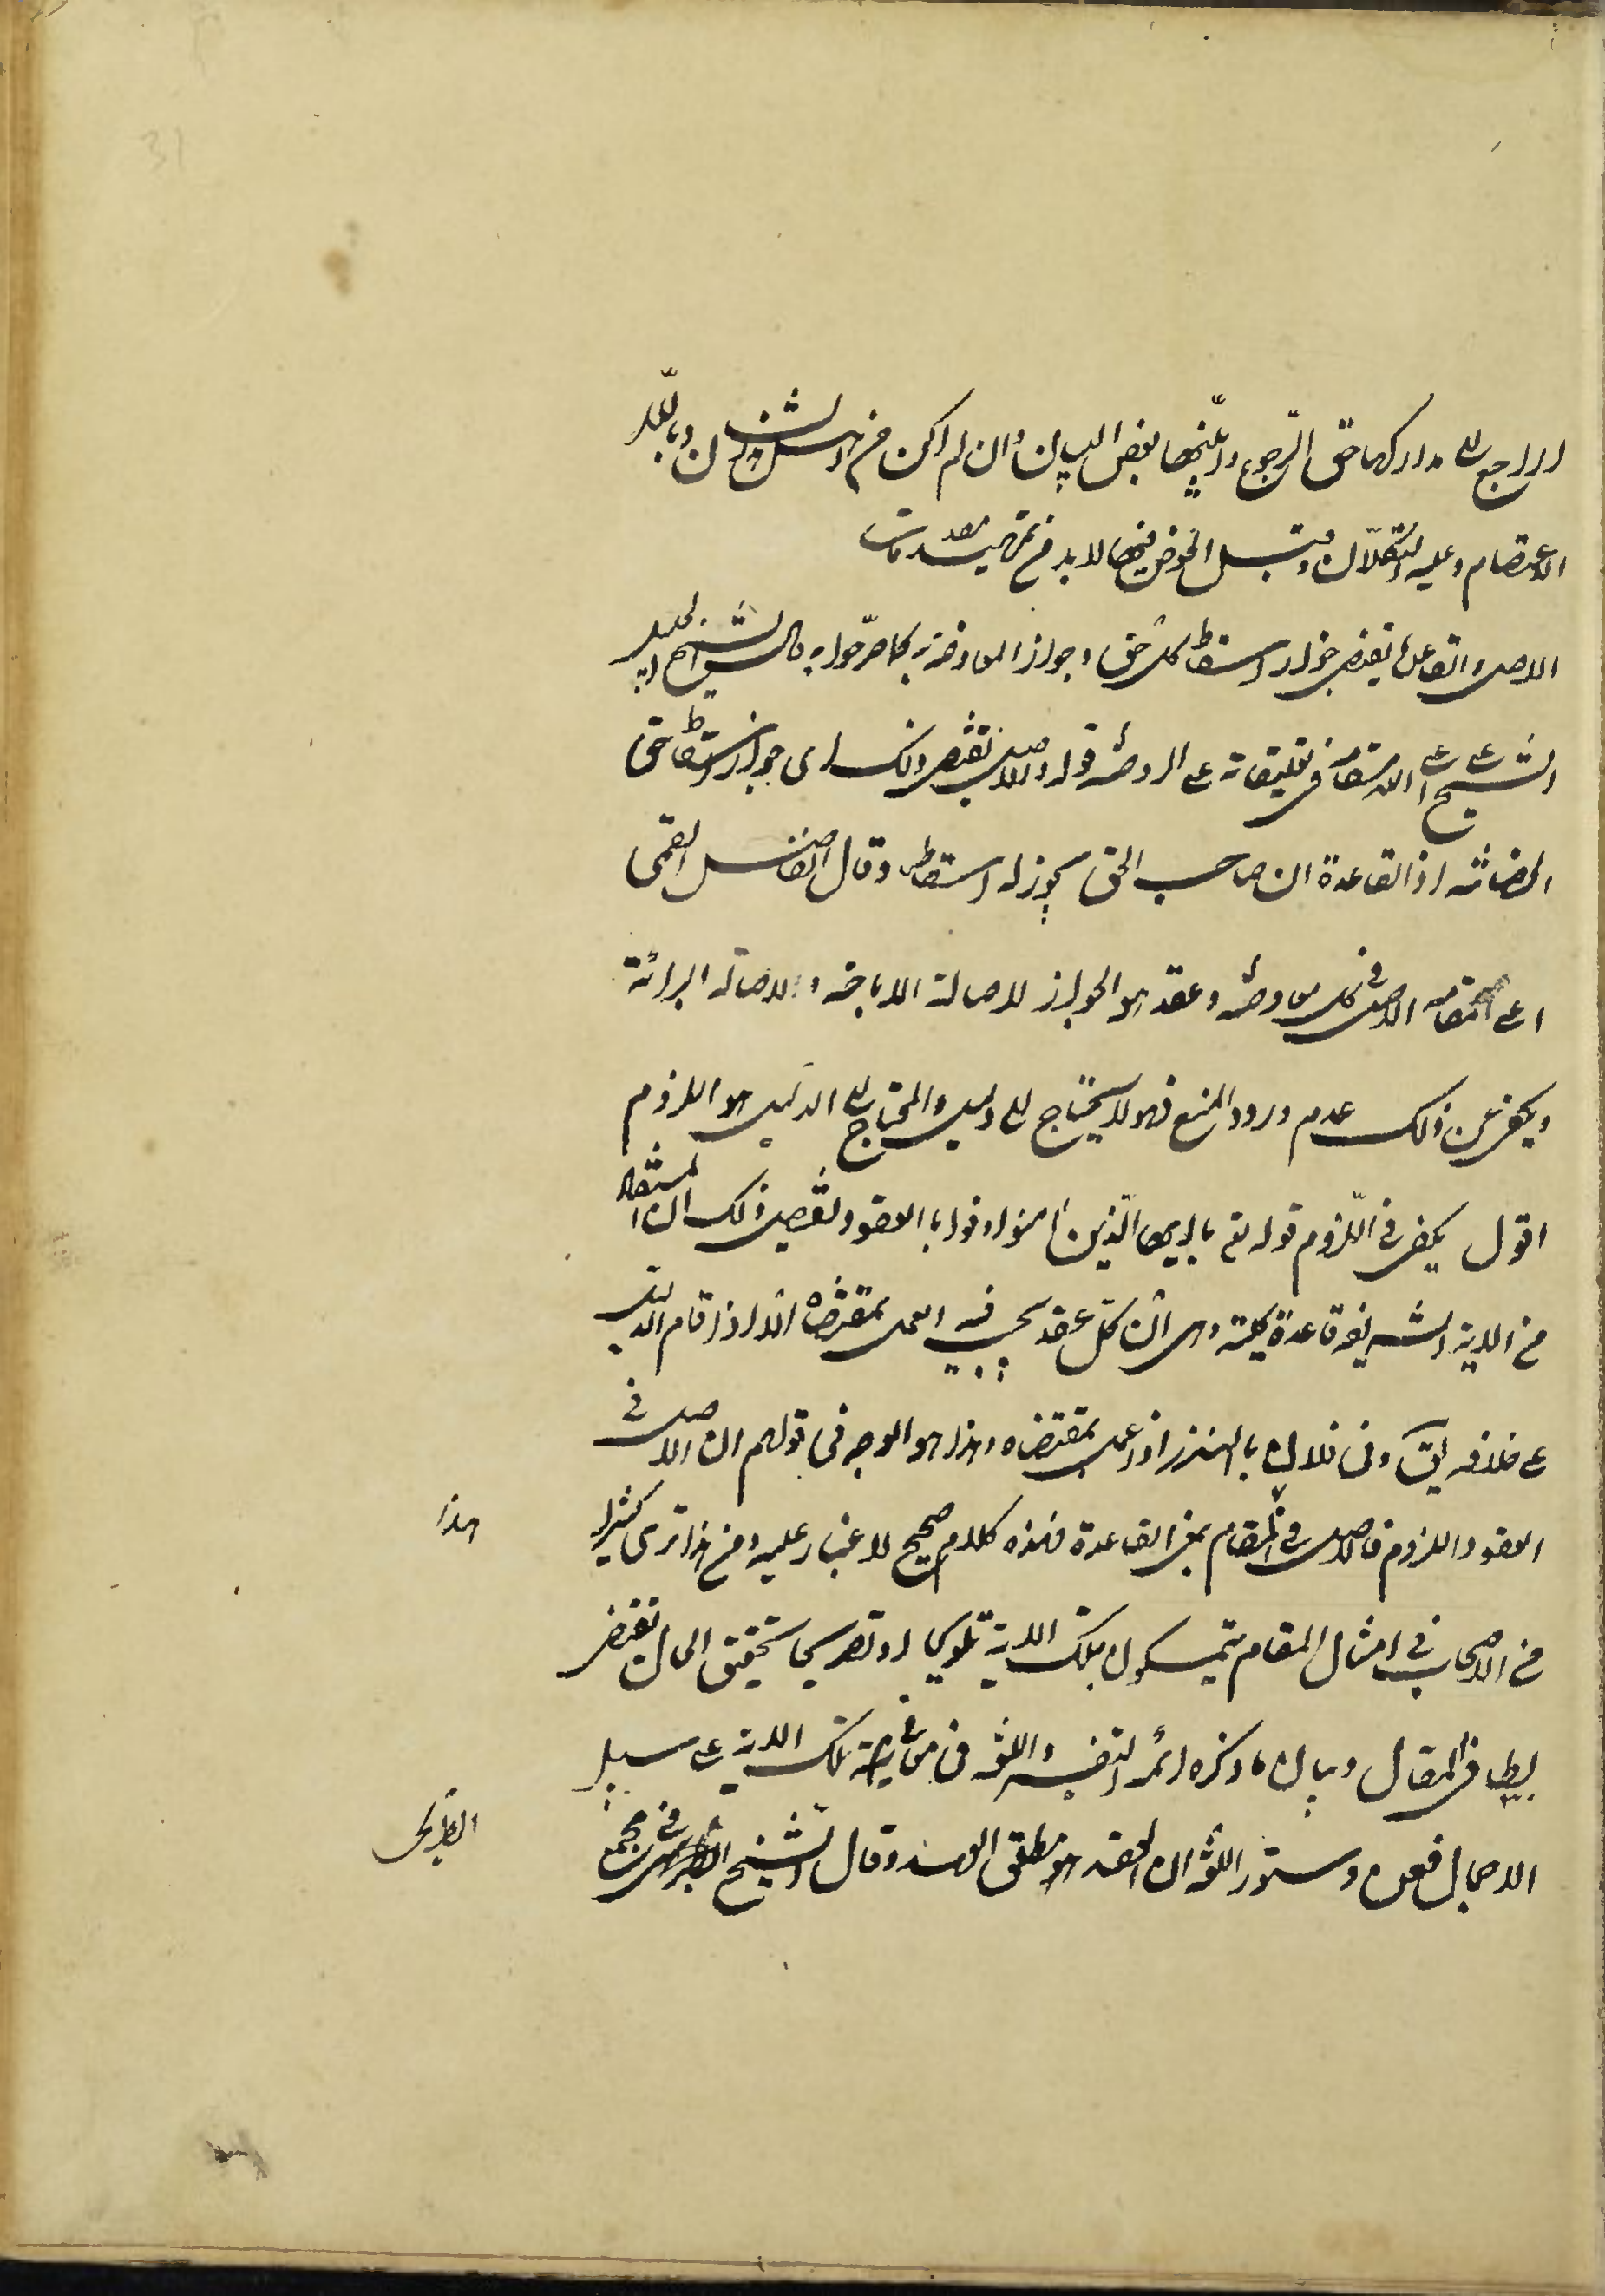 اراجع الى مداركها حق الرجوع وابينها بعض البيان وان لم اكن من اهل هذا الشان وبالله
الاعتصام وعليه التكلان وقبل الخوض فيها لابد من تمهيد مقدمات
الاصل والقاعدة يقتضى جواز اسقاط كل حق وجواز المعاوضة به كما صرحوا به قال الشيخ الجليل
الشيخ على اعلى الله مقامه فى تعليقاته على الروضه قوله والاصل يقتضى ذلك اى جواز اسقاط حق
الحضانه اذ القاعدة ان صاحب الحق يجوز له اسقاطه وقال الفاضل القمى
اعلى مقامه الاصل فى كل معاوضه وعقد هو الجواز لاصالة الاباحة ولاصالة البرائة
ويكفى عن ذلك عدم ورود المنع فهو لا يحتاج الى دليل والمحتاج الى الدليل هو اللزوم
اقول يكفى فى اللزوم قوله تع يا ايها الذين آمنوا اوفوا بالعقود تفصيل ذلك ان المستفاد
من الاية الشريفة قاعدة كلية وهى ان كل عقد يجب فيه العمل بمقتضاه الا اذا قام الدليل
على خلافه يق وفى فلان بالنذر اذا عمل بمقتضاه وهذا هو الوجه فى قولهم ان الاصل فى
العقود اللزوم فالاصل فى المقام بمعنى القاعدة فهذه كلام صحيح لا غبار عليه ومن هذا ترى كثيرا
هذا
من الاصحاب فى امثال المقام يتمسكون بتلك الاية تلويحا او تصريحا تحقيق الحال يقتضى
بسطا فى المقال وبيان ما ذكره ائمة التفسير واللغة فى تلك الاية على سبيل
الاجمال فعن دستور اللغة ان العقد هو مطلق العهد وقال الشيخ فى مجمع
الطريحى